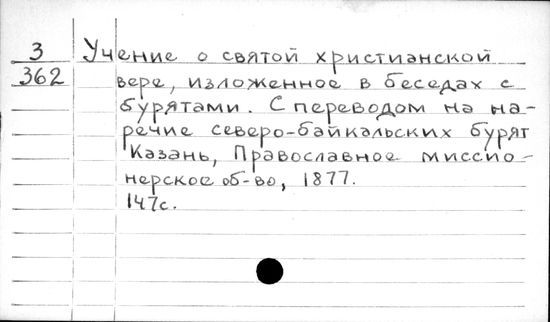 3 Учение о святой христианской
362 вере, изложенное в беседах с
бурятами. С переводом на на-
речие северо-байкальских бурят
Казань, Православное миссио-
нерское об-во, 1877.
147с.